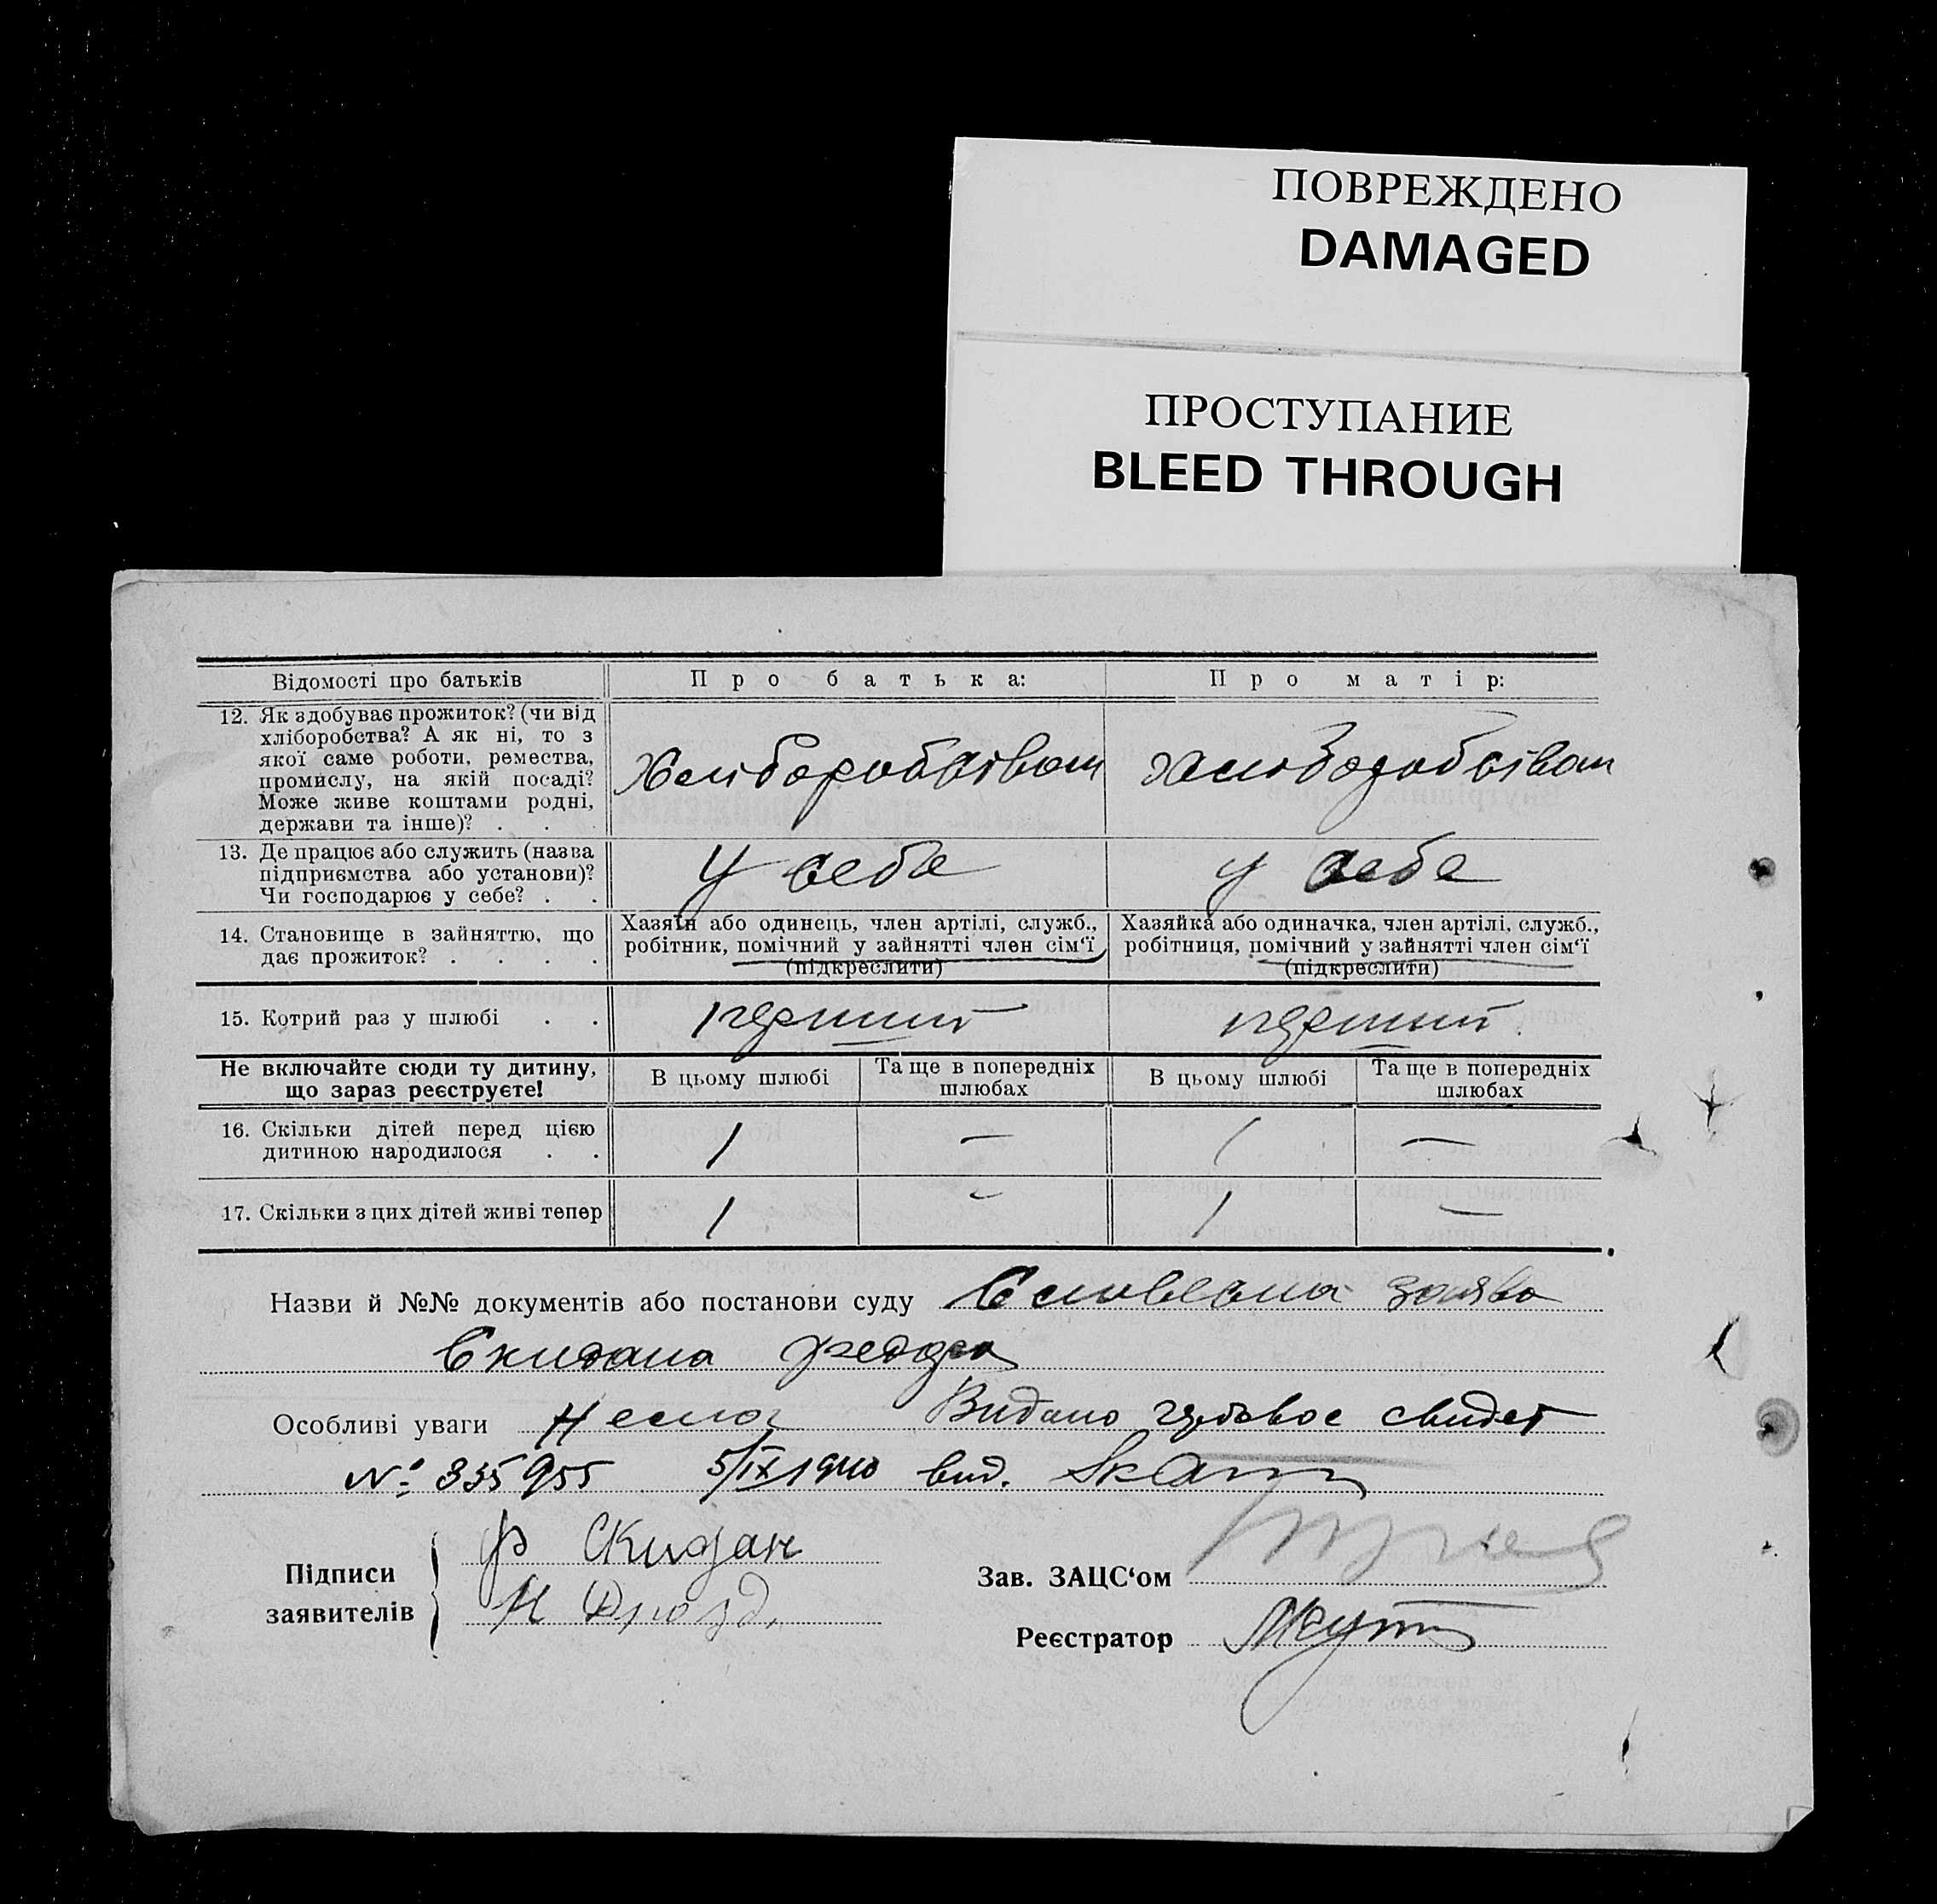 ПОВРЕЖДЕНО
DAMAGED
ПРОСТУПАНИЕ
BLEED THROUGH
Відомості про батьків
Про батька:
Про матір:
12. Як здобуває прожиток? (чи від
хліборобства? А як ні, то з
якої саме роботи, ремества,
промислу, на якій посаді?
Може живе коштами родні,
держави та інше)? . .
Хліборобством
13. Де працює або служить (назва
підприємства або установи)?
Чи господарює у себе? . .
У себе
у себе
14. Становище в зайняттю, що
дає прожиток? . . . .
Хазяїн або одинець, член артілі, служб.,
робітник, помічний у зайнятті член сім‘ї
(підкреслити)
Хазяйка або одиначка, член артілі, служб.,
робітниця, помічний у зайнятті член сім‘ї
(підкреслити)
15. Котрий раз у шлюбі . .
перший
перший
Не включайте сюди ту дитину,
що зараз реєструєте!
В цьому шлюбі
Та ще в попередніх
шлюбах
В цьому шлюбі
Та ще в попередніх
шлюбах
16. Скільки дітей перед цією
дитиною народилося . .
1 — 1 —
17. Скільки з цих дітей живі тепер
1 - 1 —
Назви й №№ документів або постанови суду Словесна заява
Скидана Федора
Особливі уваги Нема Видано свидет
№ 335955 5/IX 1940 вид.
Підписи
заявителів
Ф Скидан
Н Дрозд
Зав. ЗАЦС‘ом
Реєстратор